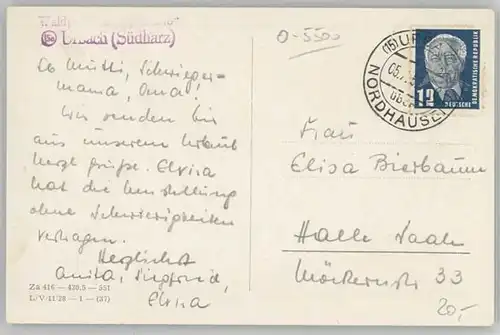 (15a) Urbach (Südharz)
0-5500
(15) UR
05.7
NORDHAUSEN
12
DEUTSCHE
DEMOKRATISCHE REPUBLIK
Lb Mutti, Schwieger-
mama, Oma!
Wir senden dir
aus unserem Urlaub
herzl Grüße. Elvira
hat die Umstellung
ohne Schwierigkeiten
vertragen.
Herzlichst
Anita, Siegfried,
Elvira
Za 416 — 430,5 — 551
L/V/11/28 — 1 — (37)
Frau
Elisa Bierbaum
Halle Saale
Möckernstr 33
20,-